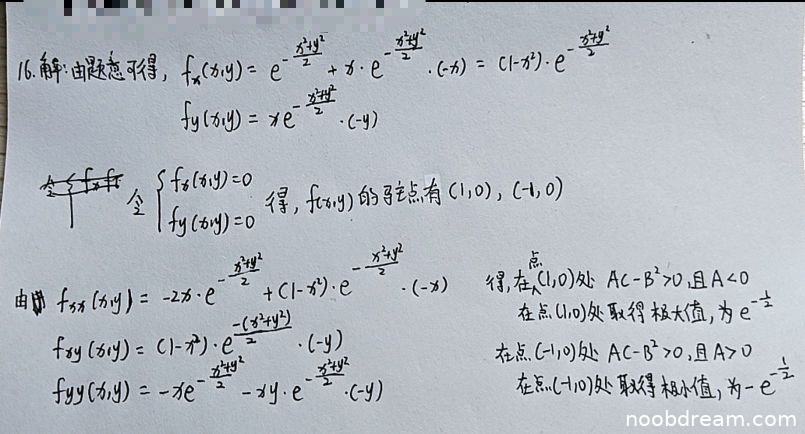 16.解:由题意可得, fx(x,y) = e^{-\frac{x²+y²}{2}} + x·e^{-\frac{x²+y²}{2}}·(-x) = (1-x²)·e^{-\frac{x²+y²}{2}}
fy(x,y) = xe^{-\frac{x²+y²}{2}}·(-y)
令 { fx(x,y)=0
fy(x,y)=0 得, f(x,y)的驻点有(1,0), (-1,0)
由 fxx(x,y) = -2x·e^{-\frac{x²+y²}{2}} + (1-x²)·e^{-\frac{x²+y²}{2}}·(-x)
fxy(x,y) = (1-x²)·e^{\frac{-(x²+y²)}{2}}·(-y)
fyy(x,y) = -xe^{-\frac{x²+y²}{2}} - xy·e^{-\frac{x²+y²}{2}}·(-y)
得,在点(1,0)处 AC-B²>0,且A<0
在点(1,0)处取得极大值,为e^{-\frac{1}{2}}
在点(-1,0)处 AC-B²>0,且A>0
在点(-1,0)处取得极小值,为-e^{-\frac{1}{2}}
noobdream.com